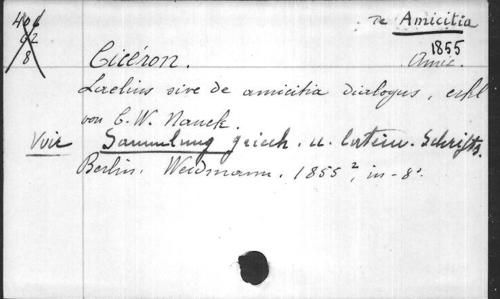 406
62
8
De Amicitia
1855
Amic.
Cicéron.
Laelius sive de amicitia dialogus, erkl
von C. W. Nauck.
Voir Sammlung griech. u. latein. Schrifts.
Berlin. Weidmann. 1855², in-8°.